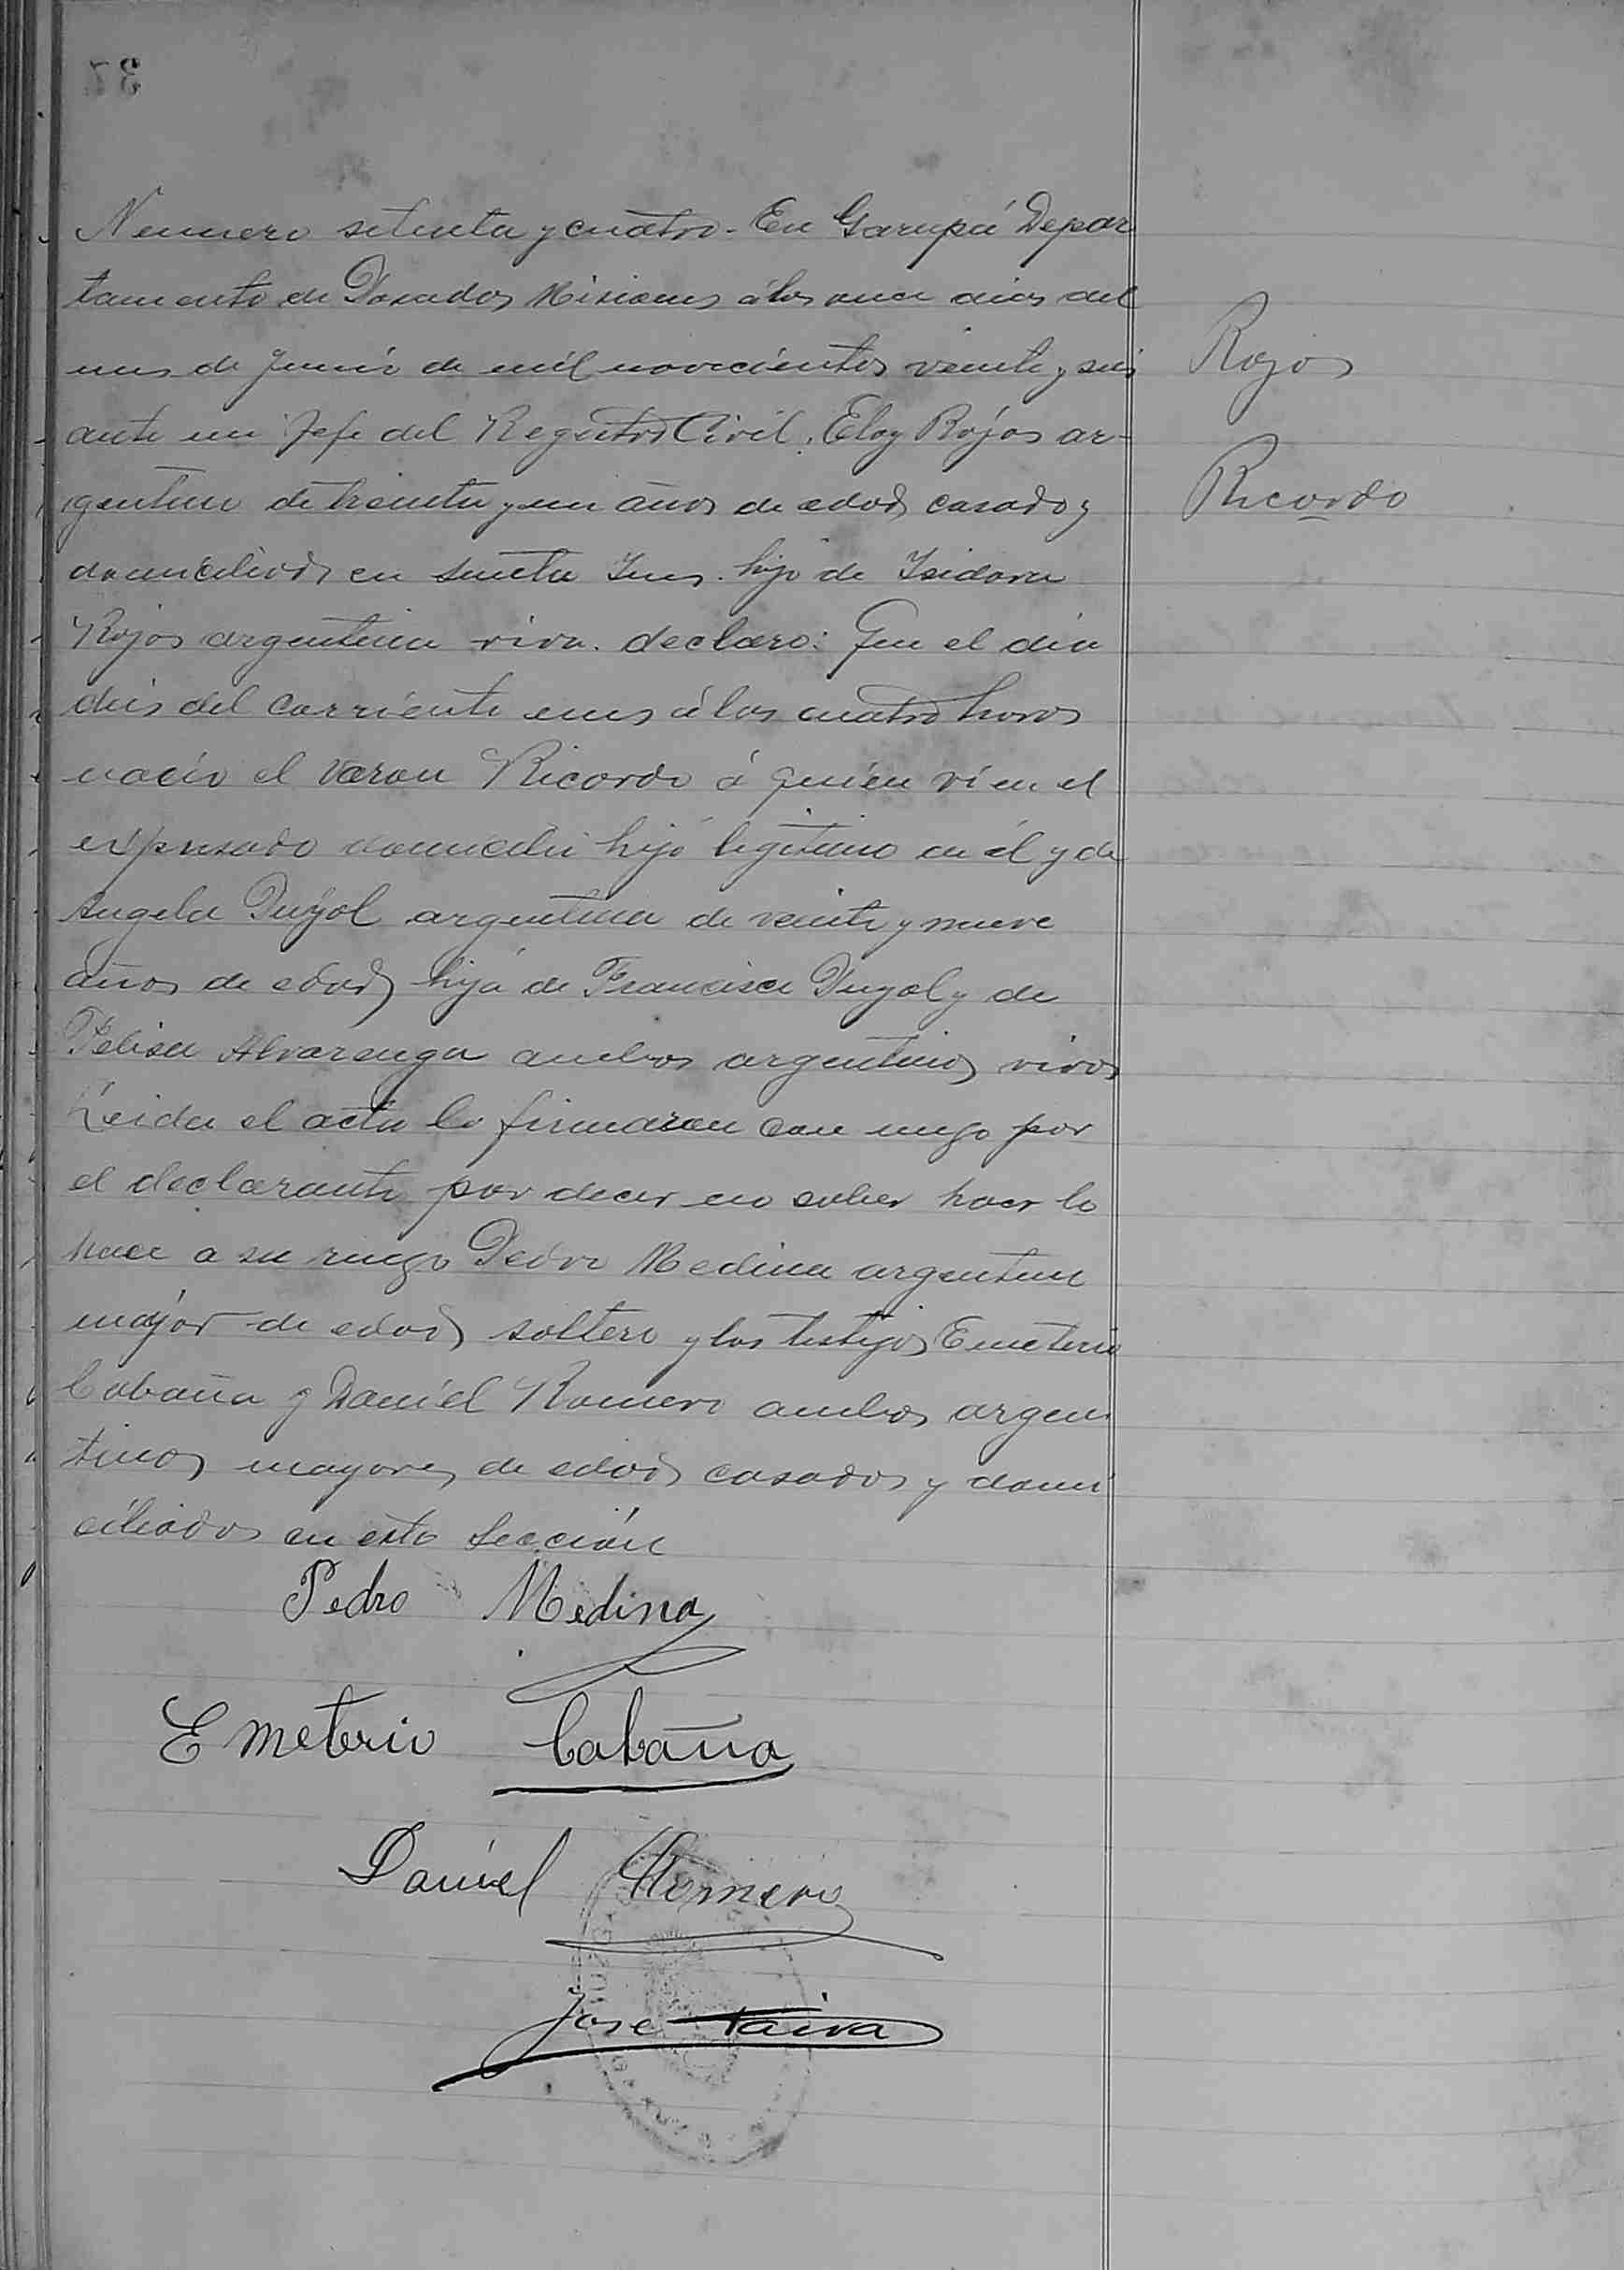 Numero setenta y cuatro - En Garupá Depar
tamento de Posadas Misiones á los once dias del
mes de Junio de mil novecientos veinte y seis
ante mi Jefe del Registro Civil. Eloy Rojas ar-
gentino de treinta y un años de edad casado y
domiciliado en Santa Ines. hijo de Isidora
Rojas argentina viva. declaro: Que el dia
dies del corriente mes á las cuatro horas
nacio el varon Ricardo á quien vi en el
expresado domicilio hijo legitimo de él y de
Angela Pujol argentina de veinte y nueve
años de edad hija de Francisco Pujol y de
Felisa Alvarenga ambos argentinos vivos
Leida el acta la firmaron con migo por
el declarante por decir no saber hacerlo
hace a su ruego Pedro Medina argentino
mayor de edad soltero y los testigos Emeterio
Cabaña y Daniel Romero ambos argen
tinos mayores de edad casados y domi
ciliados en esta Sección
Pedro Medina
Emeterio Cabaña
Daniel Romero
Jose Paiva
Rojas
Ricardo
37